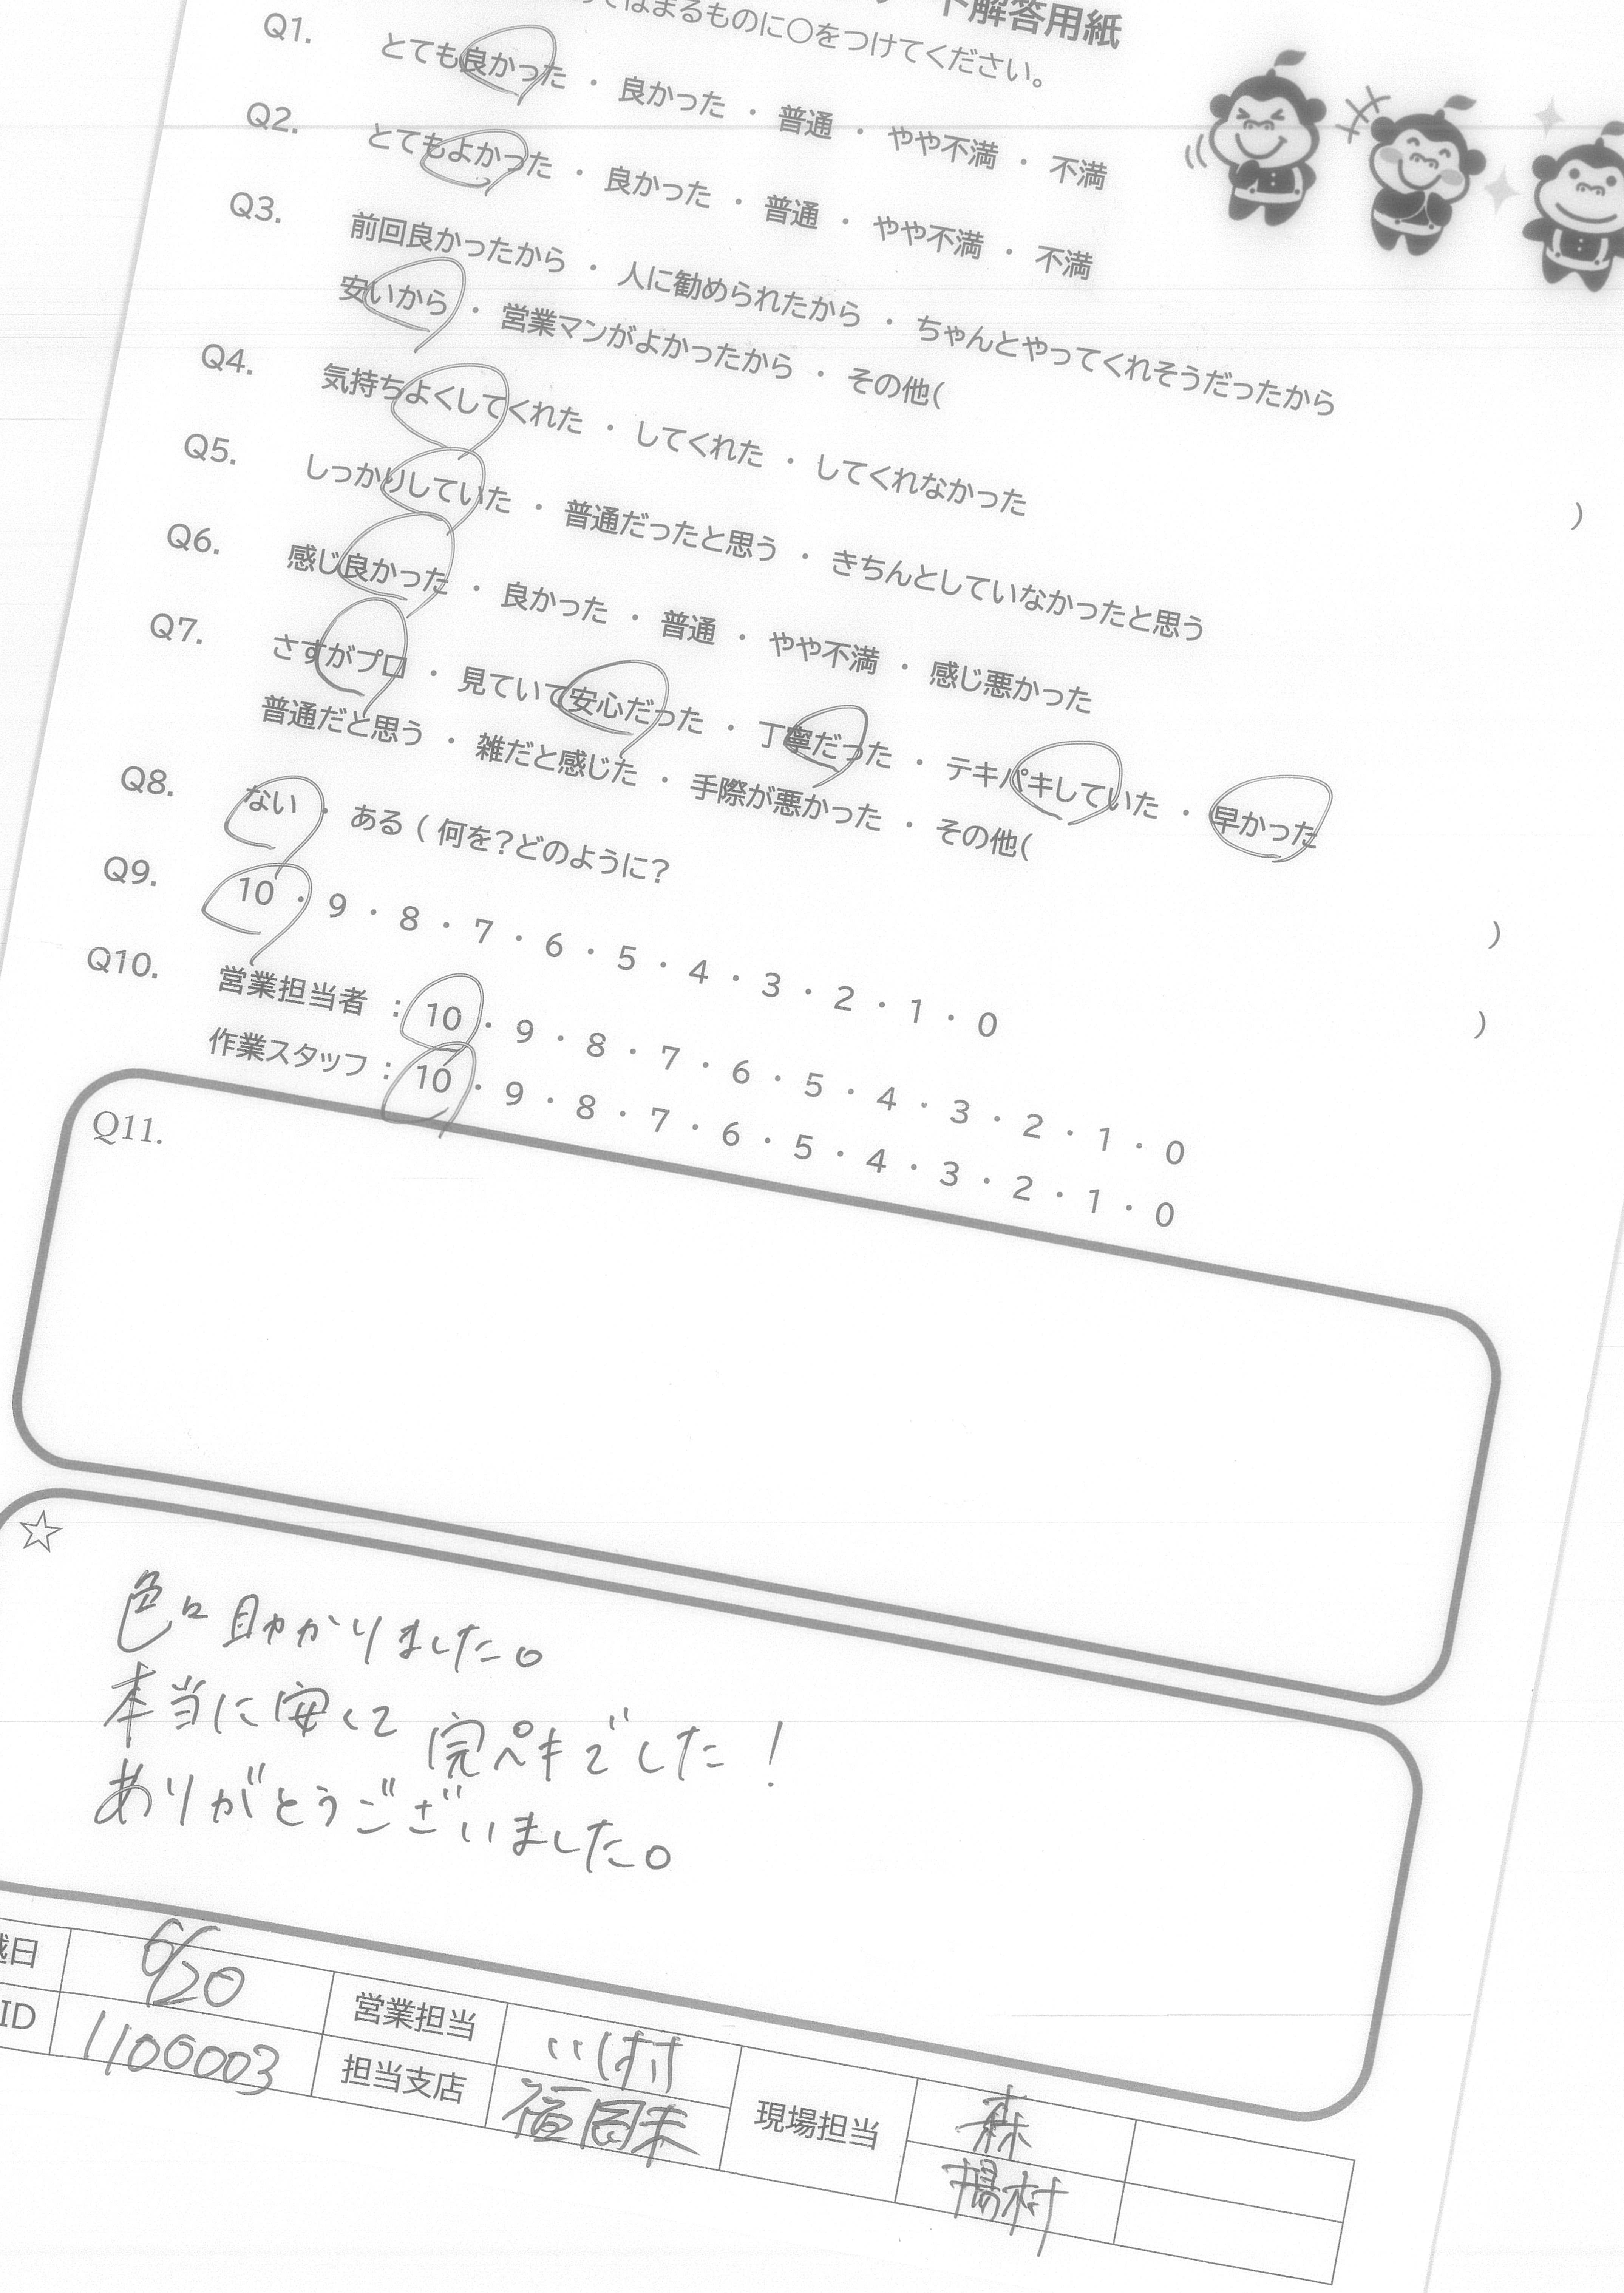 ト解答用紙
はまるものに○をつけてください。
Q1. とても良かった ・ 良かった ・ 普通 ・ やや不満 ・ 不満
Q2. とてもよかった ・ 良かった ・ 普通 ・ やや不満 ・ 不満
Q3. 前回良かったから ・ 人に勧められたから ・ ちゃんとやってくれそうだったから
安いから ・ 営業マンがよかったから ・ その他( )
Q4. 気持ちよくしてくれた ・ してくれた ・ してくれなかった
Q5. しっかりしていた ・ 普通だったと思う ・ きちんとしていなかったと思う
Q6. 感じ良かった ・ 良かった ・ 普通 ・ やや不満 ・ 感じ悪かった
Q7. さすがプロ ・ 見ていて安心だった ・ 丁寧だった ・ テキパキしていた ・ 早かった
普通だと思う ・ 雑だと感じた ・ 手際が悪かった ・ その他( )
Q8. ない ・ ある ( 何を?どのように? )
Q9. 10 ・ 9 ・ 8 ・ 7 ・ 6 ・ 5 ・ 4 ・ 3 ・ 2 ・ 1 ・ 0
Q10. 営業担当者 : 10 ・ 9 ・ 8 ・ 7 ・ 6 ・ 5 ・ 4 ・ 3 ・ 2 ・ 1 ・ 0
作業スタッフ : 10 ・ 9 ・ 8 ・ 7 ・ 6 ・ 5 ・ 4 ・ 3 ・ 2 ・ 1 ・ 0
Q11.
☆
色々助かりました。
本当に安くて 完ペキでした!
ありがとうございました。
日 6/20 営業担当
ID 1100003 担当支店 現場担当 森